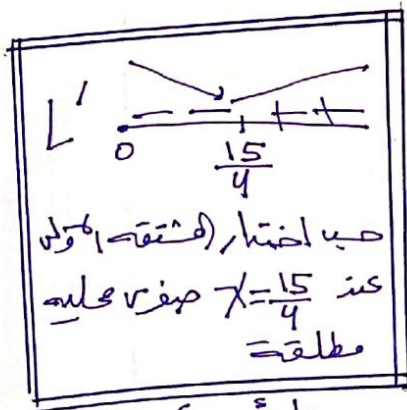 L' − − + +
0 15/4
حسب اختبار المشتقة الأولى
عند x = 15/4 صغرى محلية
مطلقة